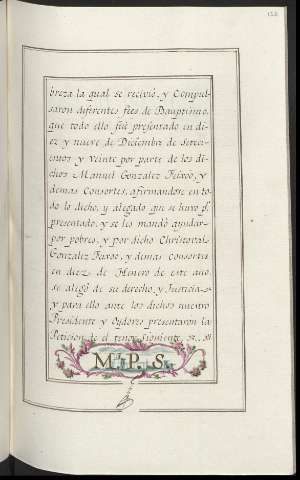 breza la qual se recivió, y Compul-
saron diferentes fées de Bauptismo,
que todo ello fué presentado en di-
ez y nueve de Diciembre de Setez-
cientos y Veinte por parte de los di-
chos Manuel Gonzalez Feixóo, y
demas Consortes, afirmandose en to-
do lo dicho, y alegado que se huvo pr.
presentado, y se les mandó ayudar
por pobres, y por dicho Christoval
Gonzalez Feixoo, y demas Consortes
en diez de Henero de este año
se alegó de su derecho, y Justicia
y para ello ante los dichos nuestro
Presidente y Oydores presentaron la
Peticion de el tenor siguiente
M. P. S.